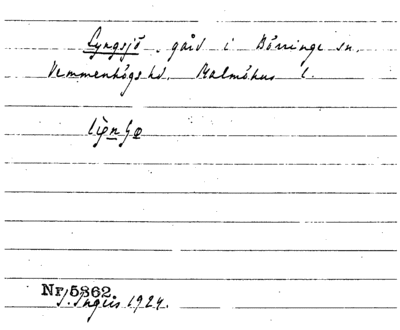 Lyngsjö, gård i Börringe sn.
Vemmenhögs hd. Malmöhus l.
Nr 5362.
J. Ingers 1924.